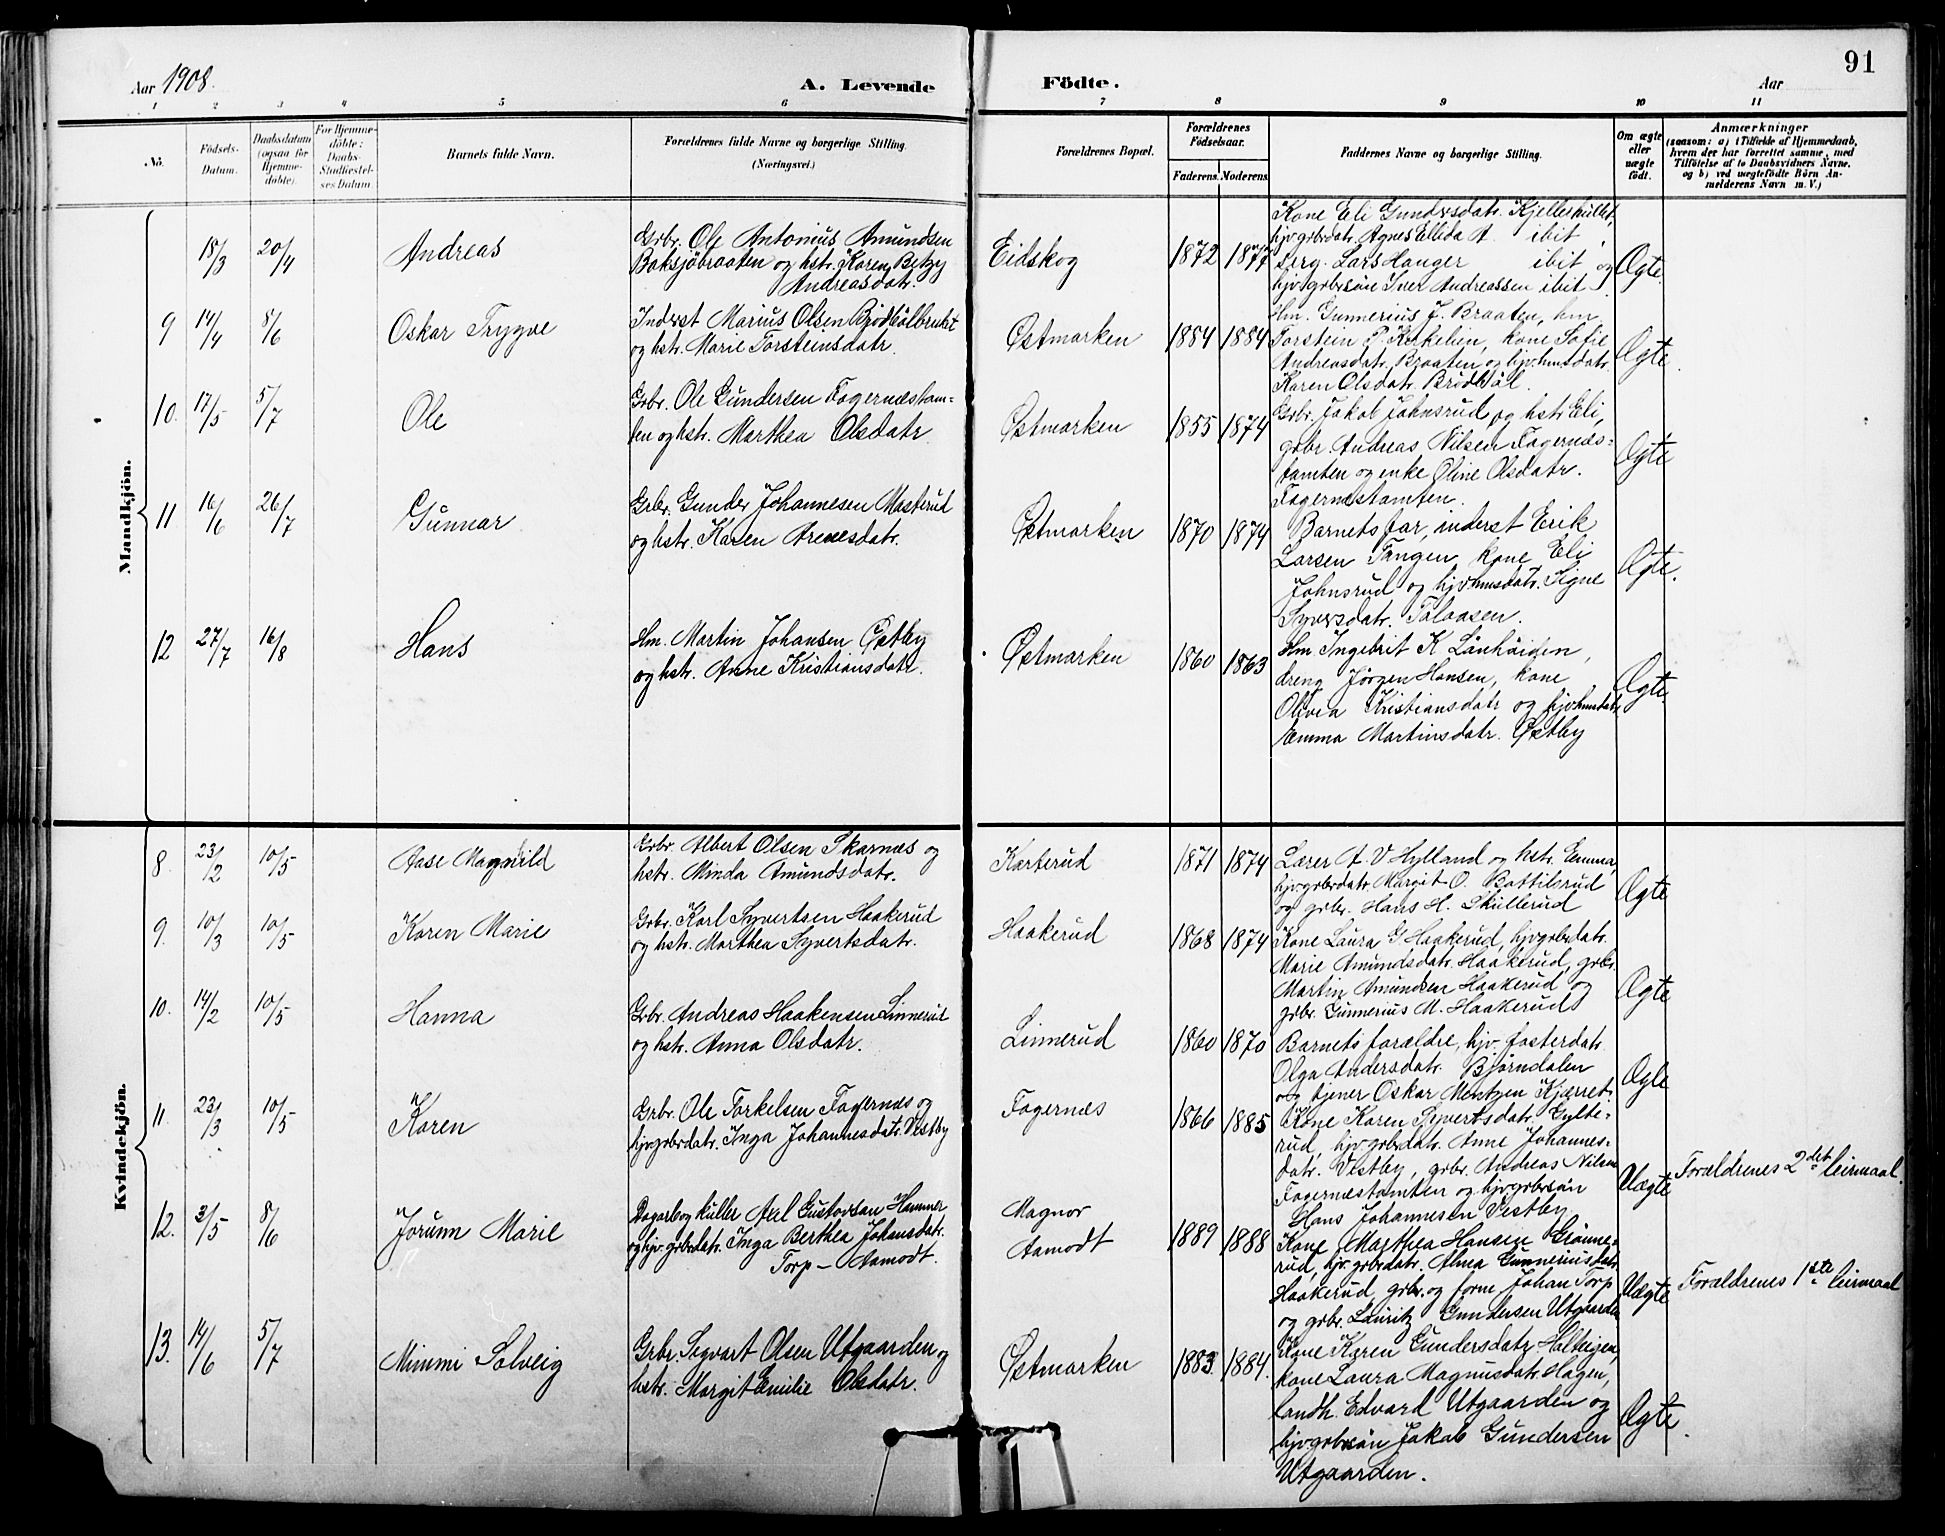 91
Aar 1908.
A. Levende Födte.
Aar
1 2 3 4 5 6 7 8 9 10 11
No.
Födsels-
Datum.
Daabsdatum
(ogsaa for
Hjemme-
döbte).
For Hjemme-
döbte:
Daabs-
Stadfæstel-
ses Datum.
Barnets fulde Navn.
Forældrenes fulde Navne og borgerlige Stilling.
(Næringsvei.)
Forældrenes Bopæl.
Forældrenes
Födselsaar.
Faderens. Moderens.
Faddernes Navne og borgerlige Stilling.
Om ægte
eller
uægte
födt.
Anmærkninger
(saasom: a) i Tilfælde af Hjemmedaab,
hvem der har forrettet samme, med
Tilföielse af to Daabsvidners Navne,
og b) ved uægtefödte Börn An-
melderens Navn m. V.)
Mandkjön.
15/3 20/4 Andreas
Grbr. Ole Antonius Amundsen
Baksjöbraaten og hstr. Karen Betzy
Andreasdatr.
Eidskog 1872 1877
Kone Eli Gundersdatr. Kjelleshullet,
hjv. grbrdatr. Agnes Elleda A. ibit,
Lars Hanger ibit og
hjv. grbrsön Iver Andreassen ibit
Ægte.
9 14/4 8/6 Oskar Trygve
Inderst Marius Olsen Brödbölbruket
og hstr. Marie Torsteinsdatr.
Østmarken 1884 1884
Hm. Gunnerius J. Braaten, hm
Torstein P. Kirkelien, kone Sofie
Andreasdatr. Braaten og hjv. hmdatr.
Karen Olsdatr. Brödböl.
Ægte.
10. 17/5 5/7 Ole
Grbr. Ole Gundersen Fagernæstom=
ten og hstr. Marthea Olsdatr.
Østmarken 1855 1874
Grbr. Jakob Johnsrud og hstr. Eli,
grbr. Andreas Nilsen Fagernæs=
tomten og enke Oline Olsdatr.
Fagernæstomten.
Ægte
11 16/6 26/7 Gunnar
Grbr. Gunder Johannesen Masterud
og hstr. Karen Arenesdatr.
Østmarken 1870 1874
Barnets far, inderst Erik
Larsen Tangen, kone Eli
Johnsrud og hjv. hmsdatr. Signe
Syversdatr. Talaasen.
Ægte.
12 27/7 16/8 Hans
Hm. Martin Johansen Østby
og hstr. Anne Kristiansdatr.
Østmarken 1860 1863
Hm Ingebrit K Lönhöiden,
dreng Jörgen Hansen, kone
Olivia Kristiansdatr og hjv. hmdatr.
Emma Martinsdatr. Østby
Ægte.
Kvindekjön.
8. 23/2 10/5 Aase Magnild
Grbr. Albert Olsen Skarnæs og
hstr. Minda Amundsdatr.
Karterud 1871 1874
Lærer A. V Hylland og hstr. Emma,
hjv. grbrdatr. Margit O. Bottilsrud
og grbr. Hans H. Skullerud
Ægte
9. 10/3 10/5 Karen Marie
Grbr. Karl Syvertsen Haakerud
og hstr. Marthea Syvertsdatr.
Haakerud 1868 1874
Kone Laura G Haakerud, hjv. grbrdatr.
Marie Amundsdatr. Haakerud, grbr.
Martin Amundsen Haakerud og
grbr. Gunnerius M. Haakerud
Ægte
10. 14/2 10/5 Hanna
Grbr. Andreas Haakensen Linnerud
og hstr. Anna Olsdatr.
Linnerud 1860 1870
Barnets forældre, hjv. fosterdatr.
Olga Andersdatr. Björndalen
og tjener Oskar Mentzen Kjærret
Ægte
11. 23/3 10/5 Karen
Grbr. Ole Torkelsen Fagernæs og
hjv. grbrdatr. Inga Johannesdatr. Vestby
Fagernæs 1866 1885
Kone Karen Syvertsdatr. Gylte=
rud, hjv. grbrdatr. Anne Johannes=
datr. Vestby, grbr. Andreas Nilsen
Fagernæstomten og hjv. grbrsön
Hans Johannesen Vestby
Uægte
Forældrenes 2det leirmaal.
12. 3/5 8/6 Jorunn Marie
Axel Gustavsan Hammer
og hjv. grbrdatr. Inga Berthea Johansdatr.
Torp – Aamodt.
Magnor
Aamodt 1889 1888
Kone Marthea Hansen Grönne=
rud, hjv. grbrdatr. Alma Gunneriusdatr.
Haakerud, grbr. og form. Johan Torp
og grbr. Lauritz Gundersen Utgaarden
Uægte
Forældrenes 1ste leirmaal
13. 14/6 5/7 Mimmi Solveig
Grbr. Sigvart Olsen Utgaarden og
hstr. Margit Emilie Olsdatr.
Østmarken 1883. 1884.
Kone Karen Gundersdatr.
kone Laura Magnusdatr. Hagen,
landh. Edvard Utgaarden og
hjv. grbrsön Jakob Gundersen
Utgaarden.
Ægte.